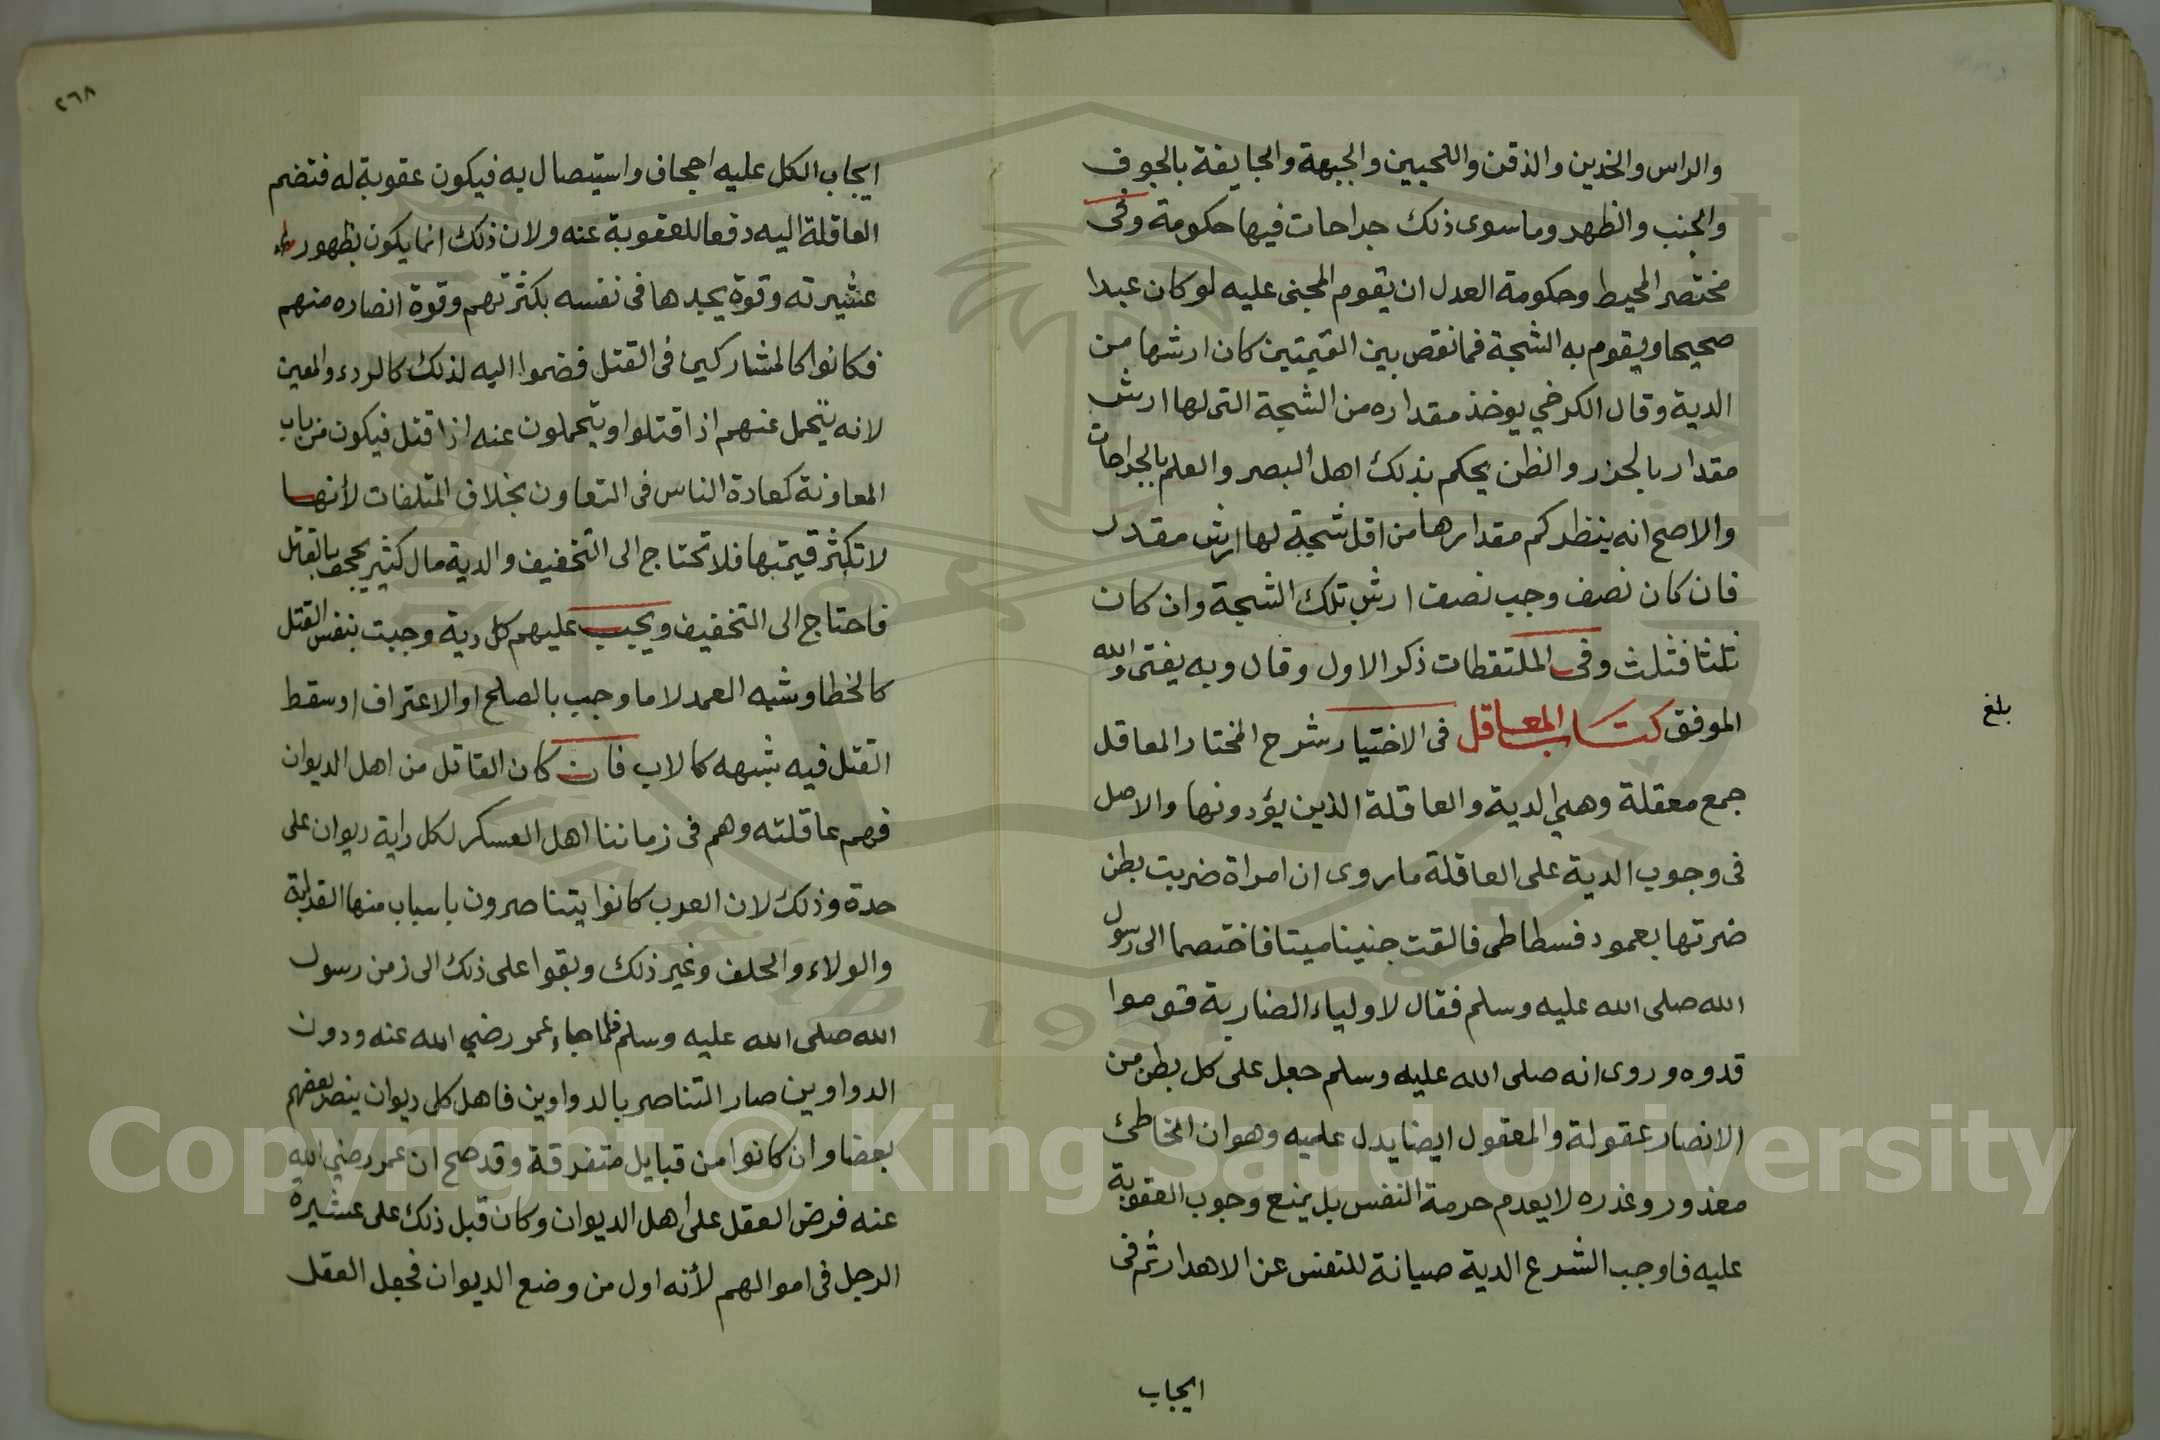 والراس والخدين والذقن واللحيين والجبهة والجايفة بالجوف
والجنب والظهر وما سوى ذلك جراحات فيها حكومة وفى
مختصر المحيط وحكومة العدل ان يقوم المجنى عليه لو كان عبدا
صحيحا ويقوم به الشجة فما نقص بين القيمتين كان ارشها من
الدية وقال الكرخي يوخذ مقداره من الشجة التى لها ارش
مقدار بالحزر والظن يحكم بذلك اهل البصر والعلم بالجراحات
والاصح انه ينظر كم مقدارها من اقل شجة لها ارش مقدر
فان كان نصف وجب نصف ارش تلك الشجة وان كان
ثلثا فثلث وفى الملتقطات ذكر الاول وقال وبه يفتى والله
الموفق كتاب المعاقل فى الاختيار شرح المختار المعاقل
جمع معقلة وهي الدية والعاقلة الذين يؤدونها والاصل
فى وجوب الدية على العاقلة ما روى ان امراة ضربت بطن
ضرتها بعمود فسطاط فالقت جنينا ميتا فاختصما الى رسول
الله صلى الله عليه وسلم فقال لاولياء الضاربة قوموا
فدوه وروى انه صلى الله عليه وسلم جعل على كل بطن من
الانصار عقولة والمعقول ايضا يدل عليه وهو ان الخاطئ
معذور وعذره لا يعدم حرمة النفس بل يمنع وجوب العقوبة
عليه فاوجب الشرع الدية صيانة للنفس عن الاهدار ثم فى
ايجاب
بلغ
٢٦٨
ايجاب الكل عليه اجحاف واستيصال به فيكون عقوبة له فتضم
العاقلة اليه دفعا للعقوبة عنه ولان ذلك انما يكون بظهور
عشيرته وقوة يجدها فى نفسه بكثرتهم وقوة انصاره منهم
فكانوا كالمشاركين فى القتل فضموا اليه لذلك كالردء والمعين
لانه يتحمل عنهم اذا قتلوا ويتحملون عنه اذا قتل فيكون من باب
المعاونة كعادة الناس فى التعاون بخلاف المتلفات لأنها
لا تكثر قيمتها فلا تحتاج الى التخفيف والدية مال كثير يجحف بالقاتل
فاحتاج الى التخفيف ويجب عليهم كل دية وجبت بنفس القتل
كالخطا وشبه العمد لا ما وجب بالصلح او الاعتراف او سقط
القتل فيه بشبهه كالاب فان كان القاتل من اهل الديوان
فهم عاقلته وهم فى زماننا اهل العسكر لكل راية ديوان على
حدة وذلك لان العرب كانوا يتناصرون باسباب منها القرابة
والولاء والحلف وغير ذلك وبقوا على ذلك الى زمن رسول
الله صلى الله عليه وسلم فلما جاء عمر رضي الله عنه ودون
الدواوين صار التناصر بالدواوين فاهل كل ديوان ينصر بعضهم
بعضا وان كانوا من قبايل متفرقة وقد صح ان عمر رضي الله
عنه فرض العقل على اهل الديوان وكان قبل ذلك على عشيرة
الرجل فى اموالهم لأنه اول من وضع الديوان فجعل العقل
Copyright © King Saud University